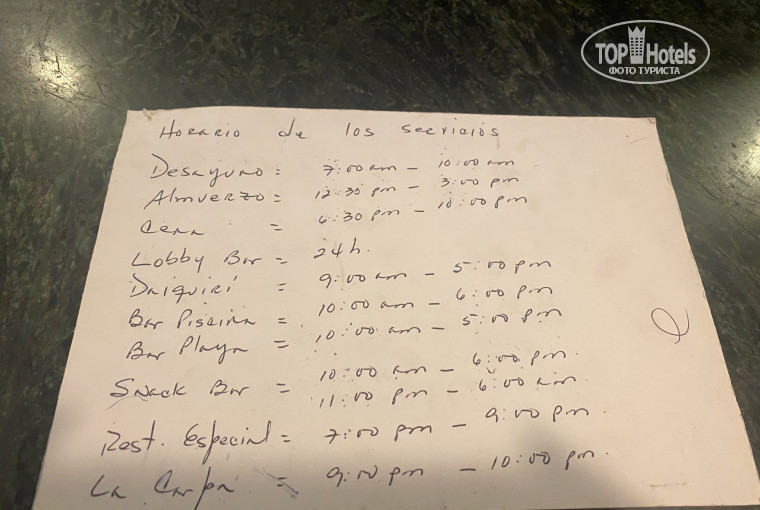 TOP Hotels
ФОТО ТУРИСТА
Horario de los servicios
Desayuno = 7:00 am - 10:00 am
Almuerzo = 12:30 pm - 3:00 pm
Cena = 6:30 pm - 10:00 pm
Lobby Bar = 24h.
Daiquirí = 9:00 am - 5:00 pm
Bar Piscina = 10:00 am - 6:00 pm
Bar Playa = 10:00 am - 5:00 pm
Snack Bar = 10:00 am - 6:00 pm.
11:00 pm - 6:00 am.
Rest. Especial = 7:00 pm - 9:00 pm.
La Carpa = 9:00 pm - 10:00 pm.